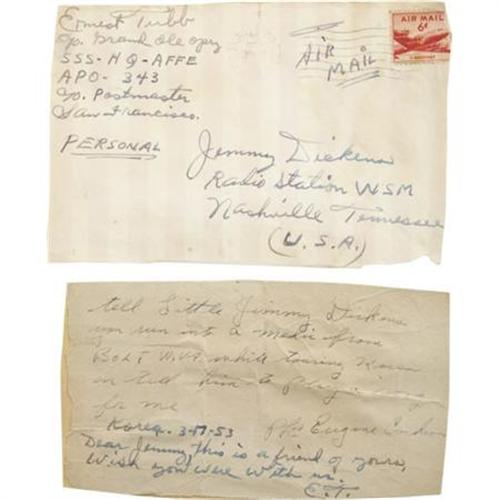 Ernest Tubb
c/o Grand Ole Opry
SSS-HQ-AFFE
APO-343
c/o Postmaster
San Francisco.
PERSONAL
AIR MAIL
AIR MAIL
6¢
Jimmy Dickens
Radio Station WSM
Nashville Tennessee
(U.S.A.)
tell Little Jimmy Dickens
you run into a medic from
Bolt W.VA. while touring Korea
tell him to play
for me
Pfc Eugene
Korea. 3-17-53
Dear Jimmy, this is a friend of yours,
Wish you were with us.
E.T.